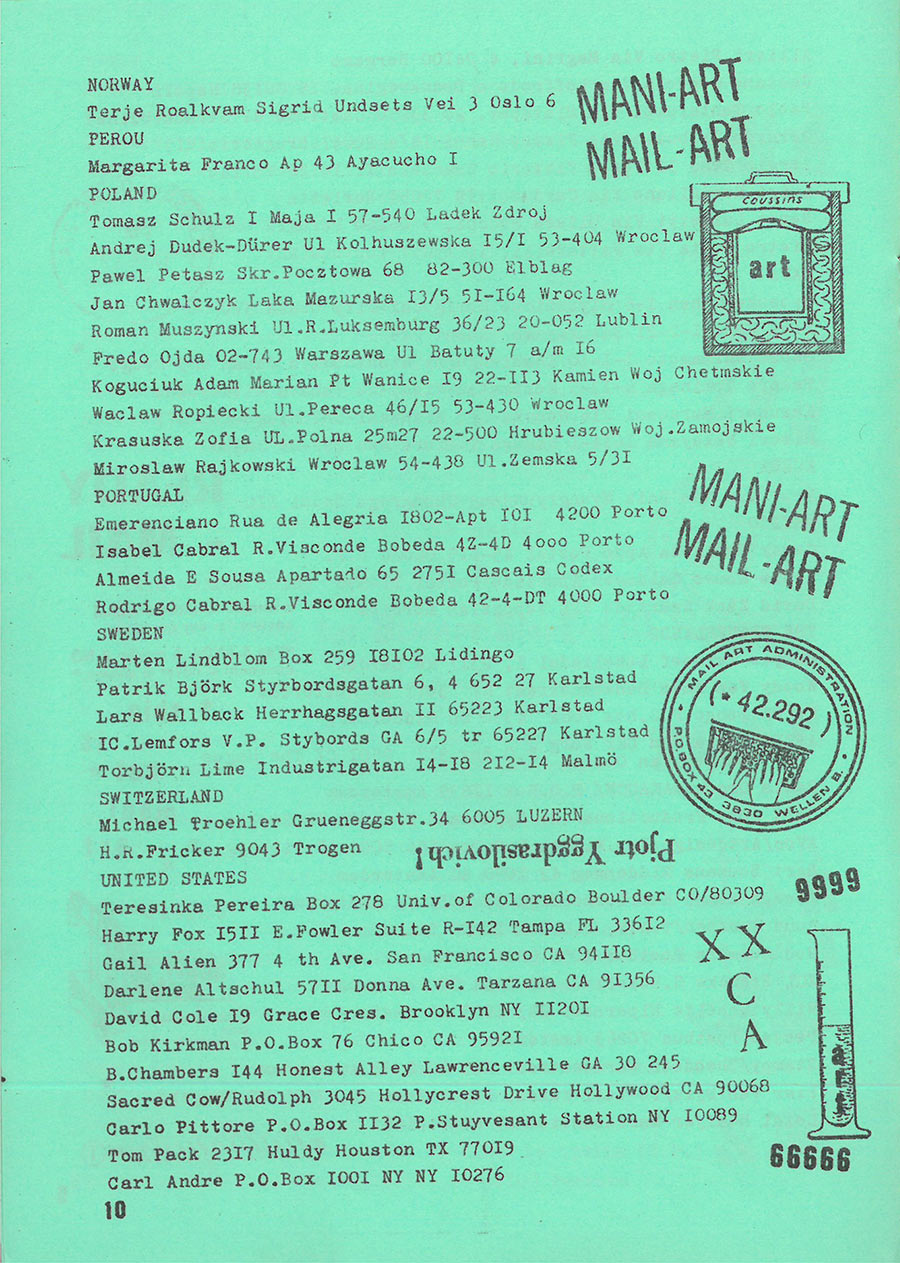 NORWAY
Terje Roalkvam Sigrid Undsets Vei 3 Oslo 6
PEROU
Margarita Franco Ap 43 Ayacucho I
POLAND
Tomasz Schulz I Maja I 57-540 Ladek Zdroj
Andrej Dudek-Dürer Ul Kolhuszewska I5/I 53-404 Wroclaw
Pawel Petasz Skr.Pocztowa 68 82-300 Elblag
Jan Chwalczyk Laka Mazurska I3/5 5I-I64 Wroclaw
Roman Muszynski Ul.R.Luksemburg 36/23 20-052 Lublin
Fredo Ojda 02-743 Warszawa Ul Batuty 7 a/m I6
Koguciuk Adam Marian Pt Wanice I9 22-II3 Kamien Woj Chetmskie
Waclaw Ropiecki Ul.Pereca 46/I5 53-430 Wroclaw
Krasuska Zofia UL.Polna 25m27 22-500 Hrubieszow Woj.Zamojskie
Miroslaw Rajkowski Wroclaw 54-438 Ul.Zemska 5/3I
PORTUGAL
Emerenciano Rua de Alegria I802-Apt IOI 4200 Porto
Isabel Cabral R.Visconde Bobeda 4Z-4D 4ooo Porto
Almeida E Sousa Apartado 65 275I Cascais Codex
Rodrigo Cabral R.Visconde Bobeda 42-4-DT 4000 Porto
SWEDEN
Marten Lindblom Box 259 I8IO2 Lidingo
Patrik Björk Styrbordsgatan 6, 4 652 27 Karlstad
Lars Wallback Herrhagsgatan II 65223 Karlstad
IC.Lemfors V.P. Stybords GA 6/5 tr 65227 Karlstad
Torbjörn Lime Industrigatan I4-I8 2I2-I4 Malmö
SWITZERLAND
Michael Troehler Grueneggstr.34 6005 LUZERN
H.R.Fricker 9043 Trogen
UNITED STATES
Teresinka Pereira Box 278 Univ.of Colorado Boulder CO/80309
Harry Fox I5II E.Fowler Suite R-I42 Tampa FL 336I2
Gail Alien 377 4 th Ave. San Francisco CA 94II8
Darlene Altschul 57II Donna Ave. Tarzana CA 9I356
David Cole I9 Grace Cres. Brooklyn NY II20I
Bob Kirkman P.O.Box 76 Chico CA 9592I
B.Chambers I44 Honest Alley Lawrenceville GA 30 245
Sacred Cow/Rudolph 3045 Hollycrest Drive Hollywood CA 90068
Carlo Pittore P.O.Box II32 P.Stuyvesant Station NY I0089
Tom Pack 23I7 Huldy Houston TX 770I9
Carl Andre P.O.Box I00I NY NY I0276
10
MANI-ART
MAIL-ART
COUSSINS
art
MANI-ART
MAIL-ART
MAIL ART ADMINISTRATION
(* 42.292)
P.O.BOX 43 3830 WELLEN B.
Pjotr Yggdrasilovich!
9999
X X
C
A
66666